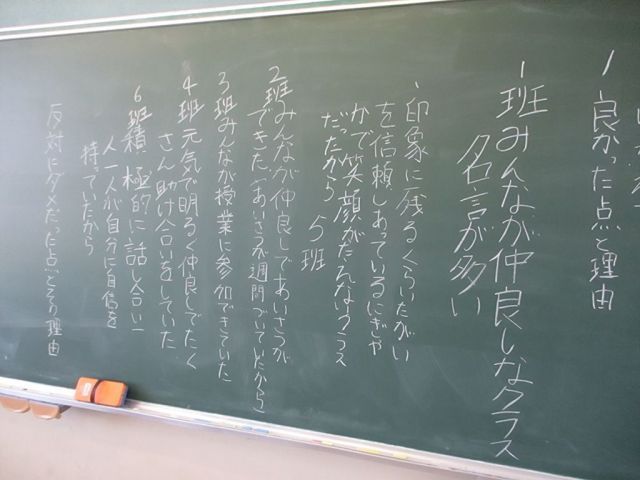 1 良かった点と理由
1班 みんなが仲良しなクラス
名言が多い
・印象に残るくらいたがい
を信頼しあっているにぎや
かで笑顔がたえないクラス
だったから 5班
2班 みんなが仲良しであいさつが
できた(あいさつ週間がついていたから)
3班 みんなが授業に参加できていた
4班 元気で明るく仲良しでたく
さん助け合いをしていた
6班 積極的に話し合い一
人一人が自分に自信を
持っていたから
反対にダメだった点とその理由